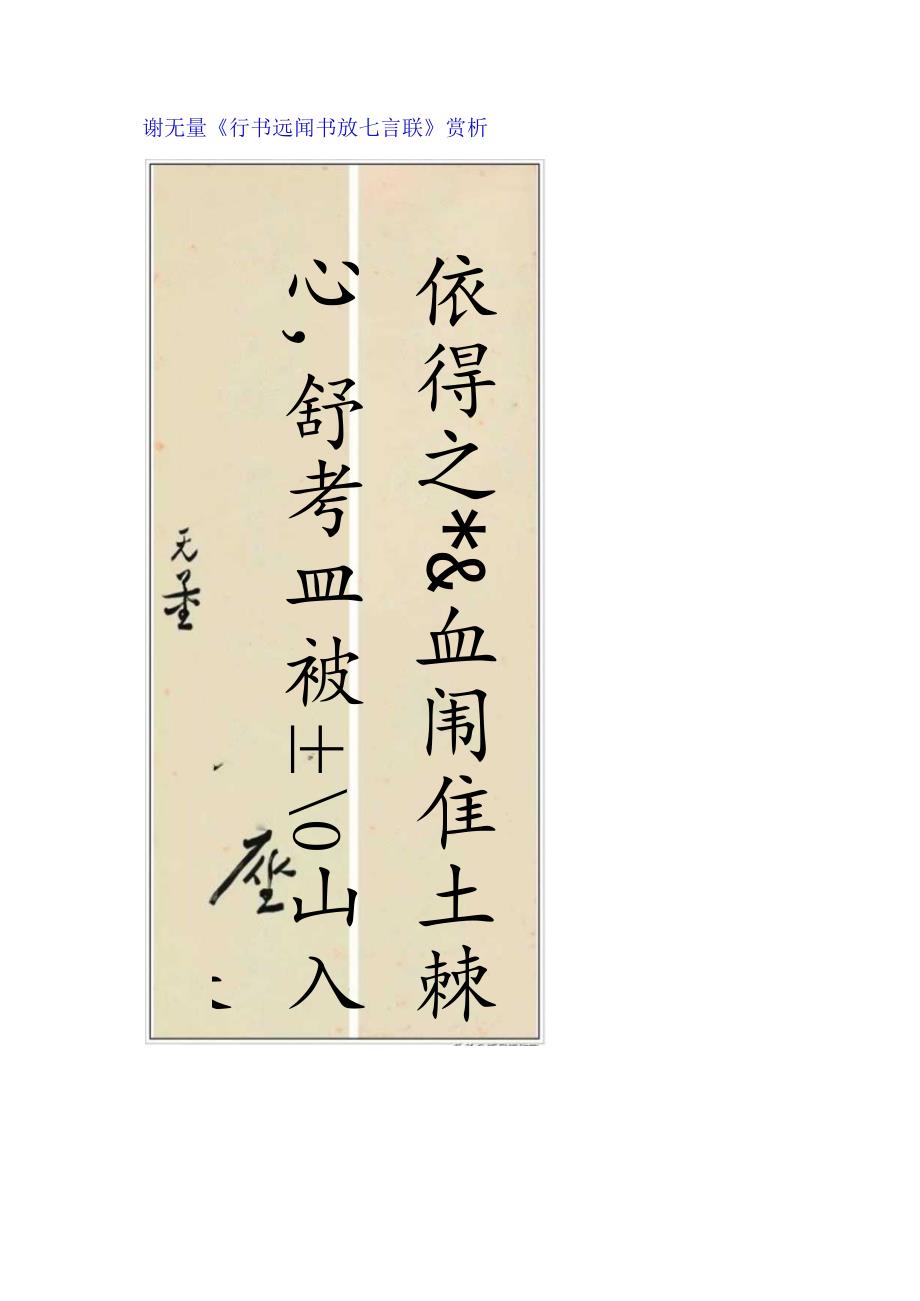 谢无量《行书远闻书放七言联》赏析
依得之*&血闹隹土棘
心,舒考皿被士\0山入
无量
座